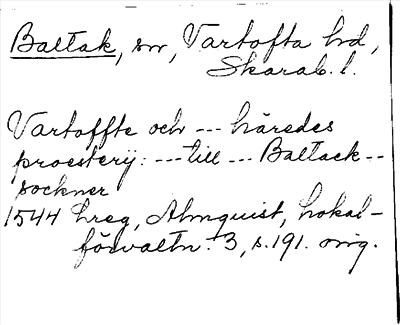 Baltak, sn, Vartofta hd,
Skarab. l.
Vartoffte och --- häredes
proesterij: --- till --- Baltack --
sockner
1544 hreg, Almquist, Lokal-
förvaltn. 3, s. 191. orig.